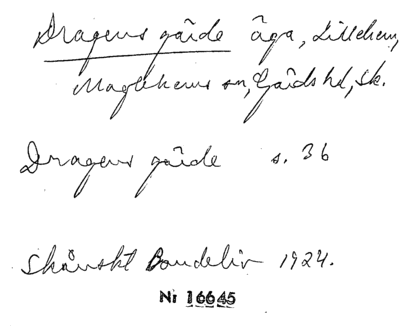 Dragens gärde äga, Lillehem,
Maglehems sn, Gärds hd, Sk.
Dragens gärde s. 36
Skånskt Bondeliv 1924.
Nr 16645